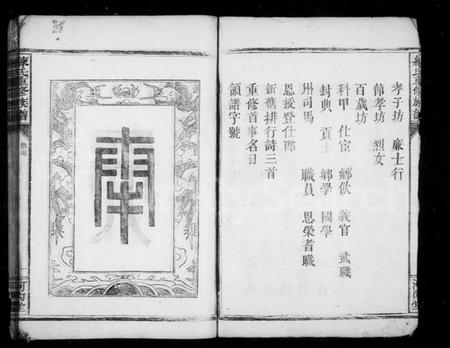 孝子坊 廉士行
節孝坊 烈女
百歲坊
科甲 仕宦 鄉飲 義官 武職
封典 貢士 鄉學 國學
州司馬 職員 恩榮耆職
恩授登仕郎
新舊排行詩三首
重修首事名目
領譜字號
東
氏重修族譜